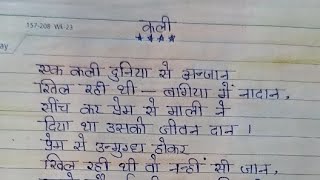 157-208 Wk-23
ay
कली
****
एक कली दुनिया से अन्जान
खिल रही थी — बगिया में नादान,
सींच कर प्रेम से माली ने
दिया था उसको जीवन दान ।
प्रेम से उन्मुग्ध होकर
खिल रही थी वो नन्हीं सी जान,